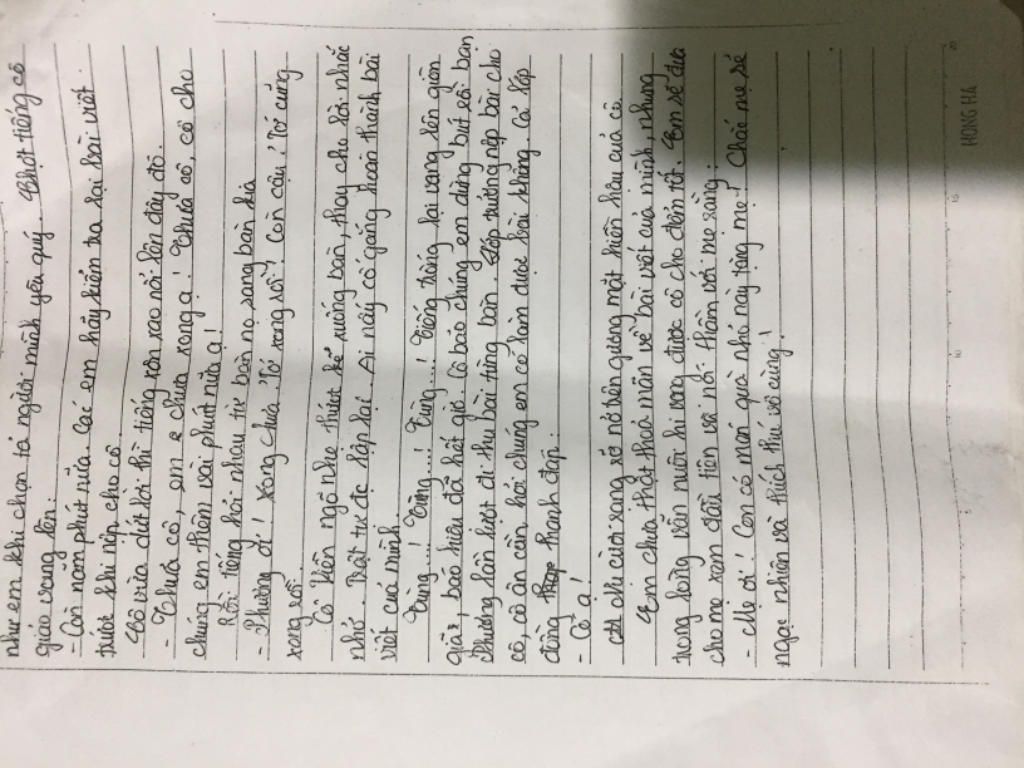 như em khi chọn tả người mình yêu quý. Chợt tiếng cô
giáo vang lên:
- Còn năm phút nữa. Các em hãy kiểm tra lại bài viết
trước khi nộp cho cô.
Cô vừa dứt lời thì tiếng xôn xao nổi lên đây đó.
- Thưa cô, em chưa xong ạ! Thưa cô, cô cho
chúng em thêm vài phút nữa ạ!
Rồi tiếng hỏi nhau từ bàn nọ sang bàn kia
- Phương ơi! Xong chưa? Tớ xong rồi! Còn cậu? Tớ cũng
xong rồi.
Cô Hiền ngõ nhẹ thước kẻ xuống bàn, thay cho lời nhắc
nhở. Trật tự được lập lại. Ai nấy cố gắng hoàn thành bài
viết của mình.
Tùng...! Tùng...! Tùng...! Tiếng trống lại vang lên giòn
giã, báo hiệu đã hết giờ. Cô bảo chúng em dừng bút rồi bạn
Phương lần lượt đi thu bài từng bàn. Lớp trưởng nộp bài cho
cô, cô ân cần hỏi chúng em có làm được bài không. Cả lớp
đồng thanh đáp:
- Có ạ!
Một nụ cười rạng rỡ nở trên gương mặt hiền hậu của cô.
Em chưa thật thoả mãn về bài viết của mình, nhưng
trong lòng vẫn nuôi hi vọng được cô cho điểm tốt. Em sẽ đưa
cho mẹ xem đầu tiên và nói thầm với mẹ rằng:
- Mẹ ơi! Con có món quà nhỏ này tặng mẹ! Chắc mẹ sẽ
ngạc nhiên và thích thú vô cùng!
HONG HA